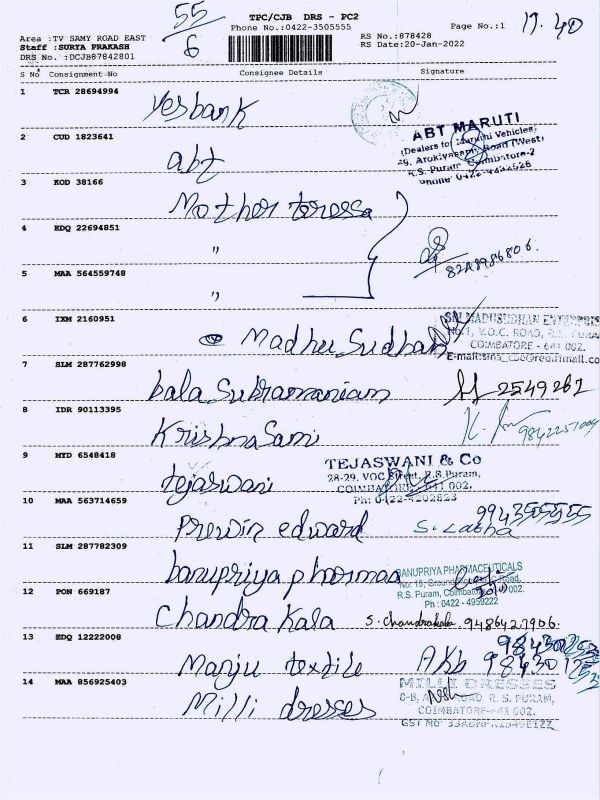 55/6
TPC/CJB DRS - PC2
Phone No.:0422-3505555
Page No.:1
17.40
Area :TV SAMY ROAD EAST
Staff :SURYA PRAKASH
DRS No. :DCJB87842801
RS No.:878428
RS Date:20-Jan-2022
S No Consignment No Consignee Details Signature
1 TCR 28694994
Yesbank
2 CUD 1823641
abt
ABT MARUTI
(Dealers for Maruthi Vehicles)
Arokiyasamy Road (West)
R.S. Puram Coimbatore-2
3 KOD 38166
Mother teressa
4 EDQ 22694851
"
8248986806.
5 MAA 564559748
"
6 IXM 2160951
Madhu Sudhan
SRI MADUSUDHAN ENTERPRISES
No.1, V.O.C. ROAD, R.S. PURAM
COIMBATORE - 641 002.
7 SLM 287762998
bala Subramaniam
2549262
8 IDR 90113395
KrishnaSami
9 MTD 6548418
tejaswani
TEJASWANI & Co
28-29. VOC Street, R.S.Puram,
COIMBATORE - 641 002.
Ph: 0422-4202823
10 MAA 563714659
Prewin edward
S. Latha
9943555555
11 SLM 287782309
banupriya pharmaa
BANUPRIYA PHARMACEUTICALS
No. 18, Ground Floor, Road,
R.S. Puram, Coimbatore 002.
Ph : 0422 - 4959222
12 PON 669187
Chandra Kala
S. Chandrakala 9486427906
13 EDQ 12222008
Manju textile
AKb 98430
14 MAA 856925403
Milli dresses
MILLI DRESSES
ROAD R. S. PURAM,
COIMBATORE-641 002.